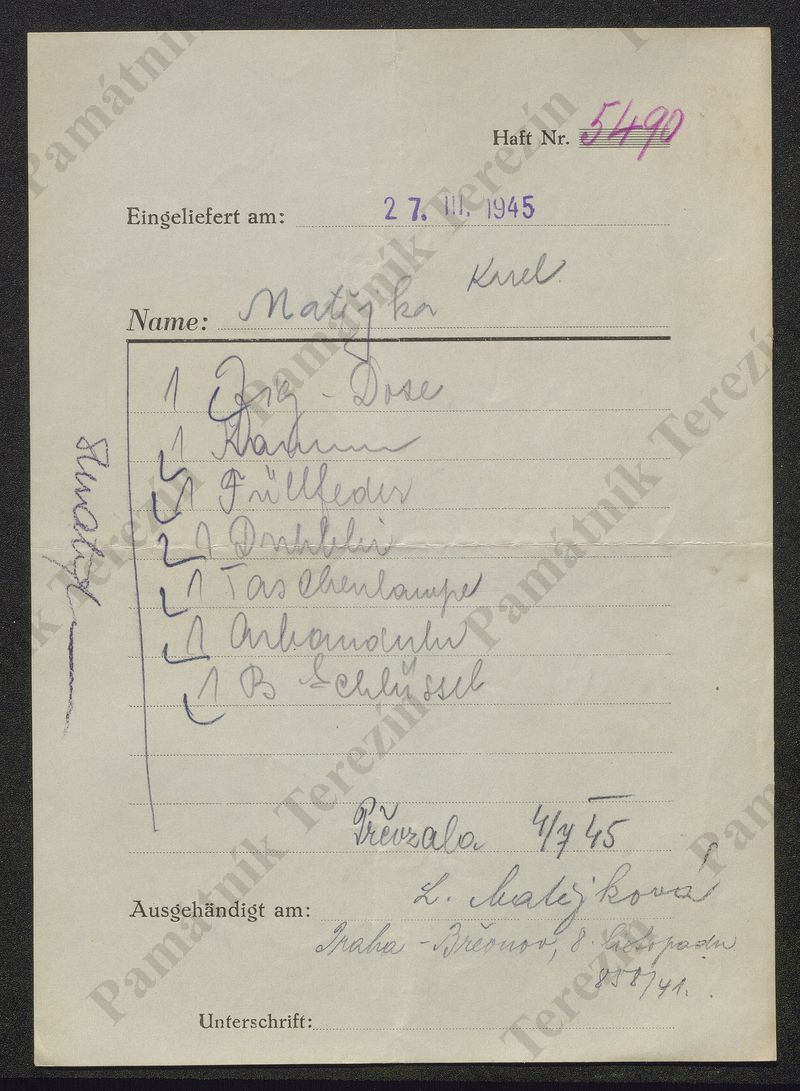 Haft Nr. 5490
Eingeliefert am: 27. III. 1945
Name: Matějka Karel
1 Zig - Dose
1 Kamm
1 Füllfeder
1
1 Taschenlampe
1 Armbanduhr
1 B Schlüssel
Převzala 4/7 45
L. Matějková
Ausgehändigt am:
Praha - Břevnov, 8. listopadu
858/41.
Unterschrift:
Památník Terezín